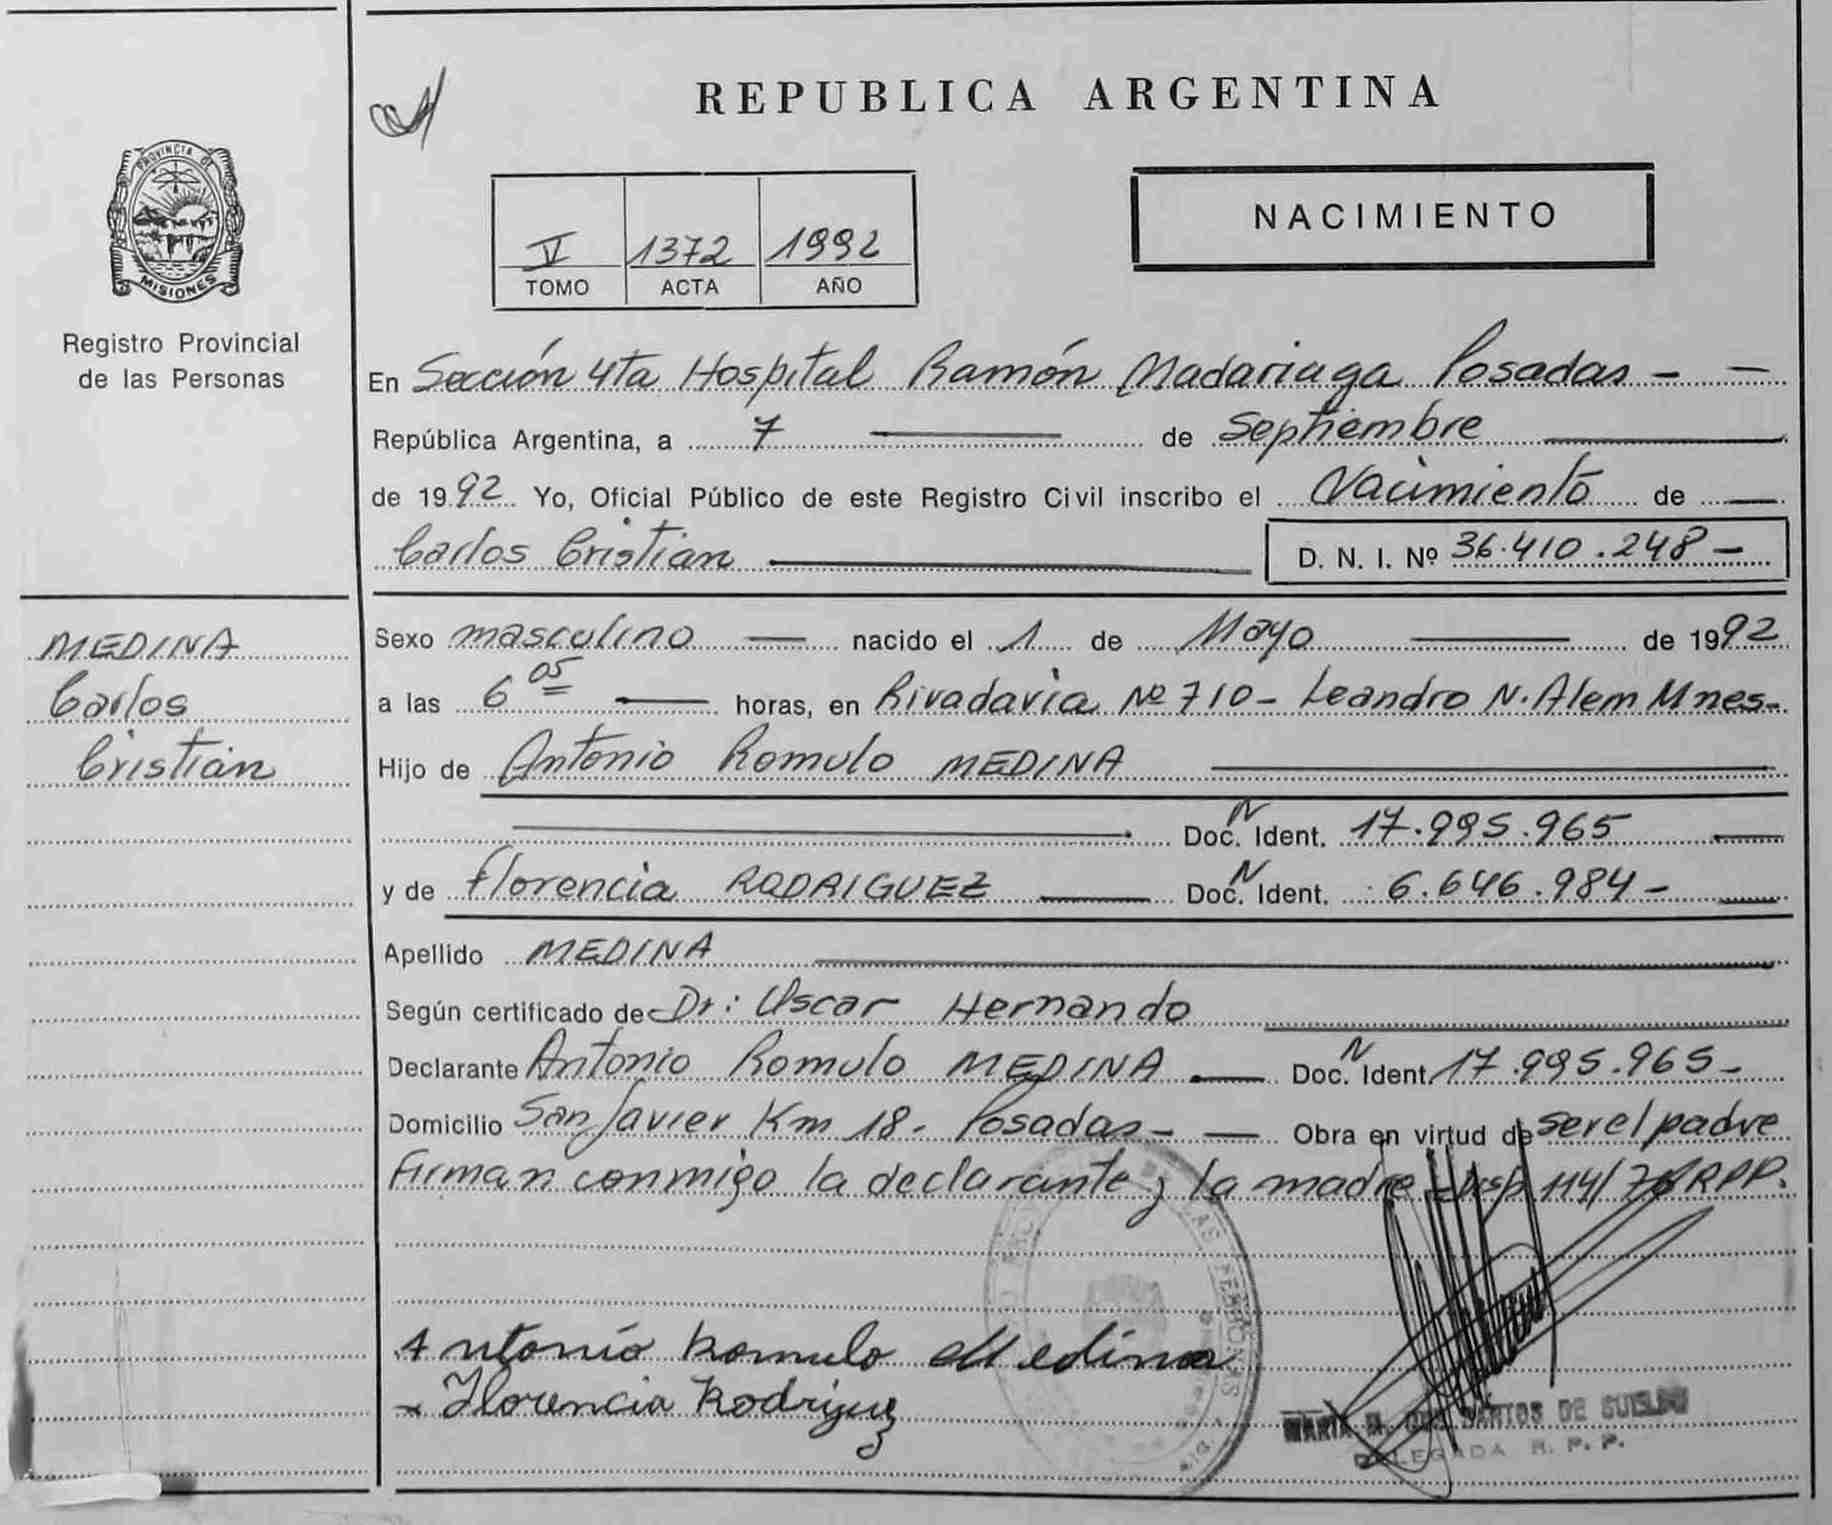 REPUBLICA ARGENTINA
PROVINCIA DE
MISIONES
Registro Provincial
de las Personas
V 1372 1992
TOMO ACTA AÑO
NACIMIENTO
En Sección 4ta Hospital Ramón Madariaga Posadas - -
República Argentina, a 7 de Septiembre
de 1992 Yo, Oficial Público de este Registro Civil inscribo el Nacimiento de
Carlos Cristian D. N. I. Nº 36.410.248 -
MEDINA
Carlos
Cristian
Sexo masculino nacido el 1 de Mayo de 1992
a las 6 05 horas, en Rivadavia Nº 710 - Leandro N. Alem Mnes.
Hijo de Antonio Romulo MEDINA
Doc. N Ident. 17.995.965
y de Florencia RODRIGUEZ Doc. N Ident. 6.646.984 -
Apellido MEDINA
Según certificado de Dr: Oscar Hernando
Declarante Antonio Romulo MEDINA Doc. N Ident. 17.995.965 -
Domicilio San Javier Km 18. Posadas - Obra en virtud de ser el padre
Firman conmigo la declarante y la madre - Disp 114/ RPP.
Antonio Romulo Medina
Florencia Rodriguez
MARIA DE
DELEGADA R. P. P.